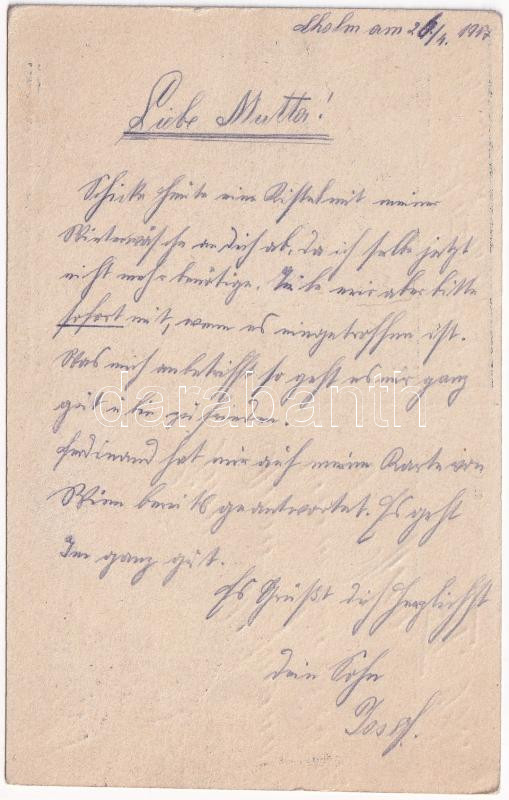 Cholm am 26/4. 1917
Liebe Mutter!
Schicke heute ein Kistel mit meiner
Winterwäsche an Dich ab, da ich selbe jetzt
nicht mehr benötige. Teile mir aber bitte
sofort mit, wenn es eingetroffen ist.
Was mich anbetrifft so geht es mir ganz
gut u bin zufrieden.
Ferdinand hat mir auf meine Karte von
Wien bereits geantwortet. Es geht
Im ganz gut.
Es Grüßt Dich Herzlichst
Dein Sohn
Josef.
darabanth